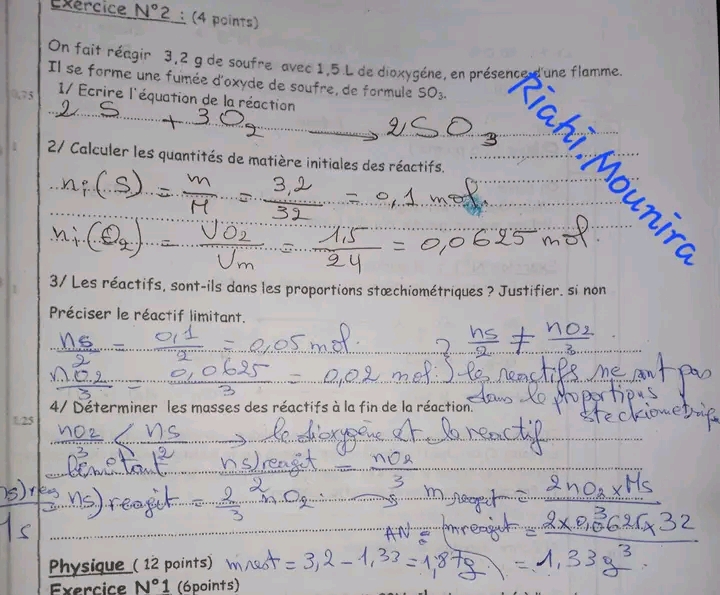 Exercice N°2 : (4 points)
On fait réagir 3,2 g de soufre avec 1,5 L de dioxygéne, en présence d'une flamme.
Il se forme une fumée d'oxyde de soufre, de formule SO₃.
1/ Ecrire l'équation de la réaction
2 S + 3O₂ → 2SO₃
2/ Calculer les quantités de matière initiales des réactifs.
ni(S) = m/M = 3,2/32 = 0,1 mol.
ni(O₂) = VO₂/Vm = 1,5/24 = 0,0625 mol.
Riahi.Mounira
3/ Les réactifs, sont-ils dans les proportions stœchiométriques ? Justifier. si non
Préciser le réactif limitant.
ns/2 = 0,1/2 = 0,05 mol. } ns/2 ≠ nO₂/3
nO₂/3 = 0,0625/3 = 0,02 mol } les reactifs ne sont pas
dans le proportions
steckiometrique
4/ Déterminer les masses des réactifs à la fin de la réaction.
1,25
nO₂/3 < ns/2 → le dioxygène et le reactif
limétant ns)reagit/2 = nO₂/3
ns)reagit = 2/3 nO₂ → m reagit = 2nO₂×Ms/3
AN = m reagit = 2×0,0625×32/3
Physique ( 12 points) m rest = 3,2 - 1,33 = 1,87g = 1,33 g
Exercice N°1 (6points)